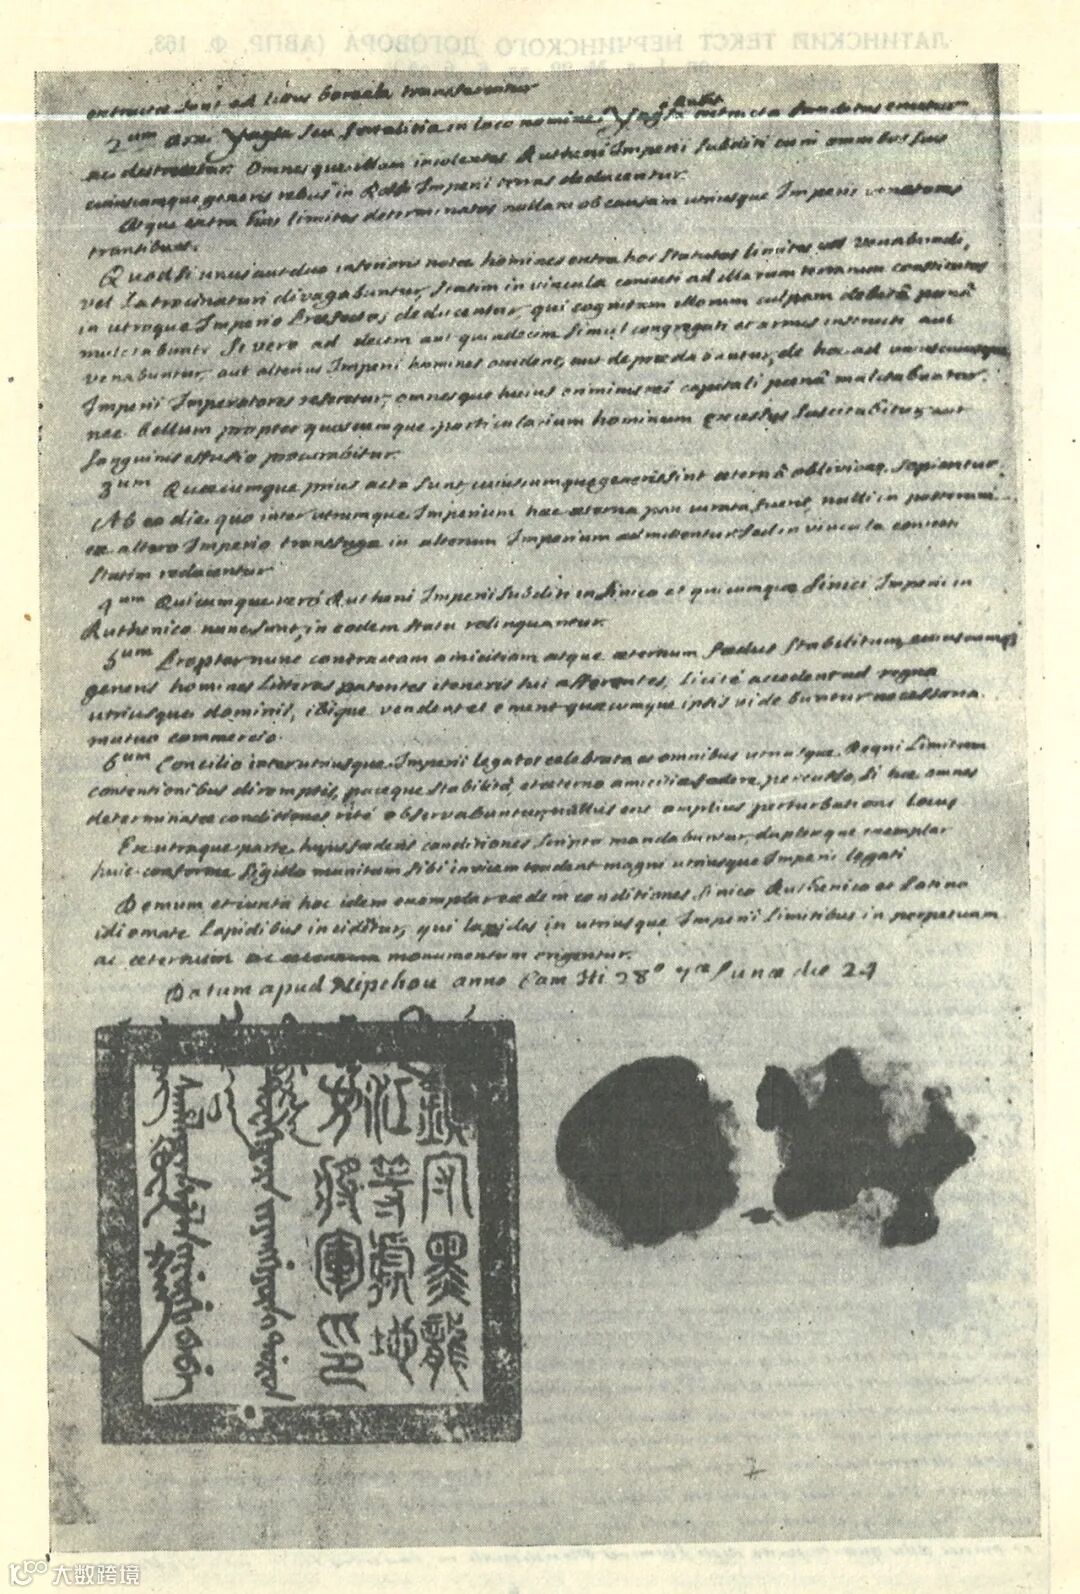 ЛАТИНСКИЙ ТЕКСТ НЕРЧИНСКОГО ДОГОВОРА (АВПР, Ф. 163,
extructae sunt ad litus boreale transferentur
2um Arx seu fortalitia in loco nomine Yagsa extructa funditus eruetur
ac destruetur. Omnesque illam incolentes Rutheni Imperii subditi cum omnibus suis
cuiuscumque generis rebus in Imperii terras deducentur.
Atque extra hos limites determinatos nullam ob causam utriusque Imperii venatores
transibunt.
Quod si unus aut duo inferioris notae homines extra hos statutos limites vel venabundi,
vel latrocinaturi divagabuntur, statim in vincula coniecti ad illarum terrarum constitutos
in utroque Imperio Praefectos deducentur, qui cognitam illorum culpam debitâ poenâ
mulctabunt: Si vero ad decem aut quindecim simul congregati et armis instructi aut
venabuntur, aut alterius Imperii homines occident, aut depraedabuntur, de hoc ad uniuscuiusque
Imperii Imperatores referetur, omnesque huius criminis rei capitali poenâ mulctabuntur,
nec bellum propter quoscumque particularium hominum excessus suscitabitur, aut
sanguinis effusio procurabitur.
3um Quaecumque prius acta sunt, cuiuscumque generis sint aeternâ oblivione sopiantur.
Ab eo die quo inter utrumque Imperium haec aeterna pax iurata fuerit, nulli in posterum
ex altero Imperio transfugae in alterum Imperium admittentur: Sed in vincula coniecti
statim reducentur
4um Quicumque vero Rutheni Imperii subditi in Sinico et quicumque Sinici Imperii in
Ruthenico nunc sunt, in eodem statu relinquantur.
5um Propter nunc contractam amicitiam atque aeternum foedus stabilitum, cuiuscumque
generis homines litteras patentes iteneris sui afferentes, licitè accedent ad regna
utriusque dominii, ibique vendent et ement quaecumque ipsis videbuntur necessaria
mutuo commercio.
6um Concilio inter utriusque Imperii legatos celebrato et omnibus utriusque Regni limitum
contentionibus diremptis, paceque stabilitâ, et aeterno amicitiae foedere percusso, si hae omnes
determinatae conditiones ritè observabuntur, nullus erit amplius perturbationi locus
Ex utraque parte hujus foederis conditiones scripto mandabuntur, duplexque exemplar
huic conforme sigillo munitum sibi invicem tradent magni utriusque Imperii legati
Demum et iuxta hoc idem exemplar eaedem conditiones Sinico Ruthenico et Latino
idiomate lapidibus incidentur, qui lapides in utriusque Imperii limitibus in perpetuum
ac aeternum monumentum erigentur.
Datum apud Nipchou anno Cam Hi 28° 7ae lunae die 24
鎮守黑龍
江等處地
方將軍印
7
大数跨境